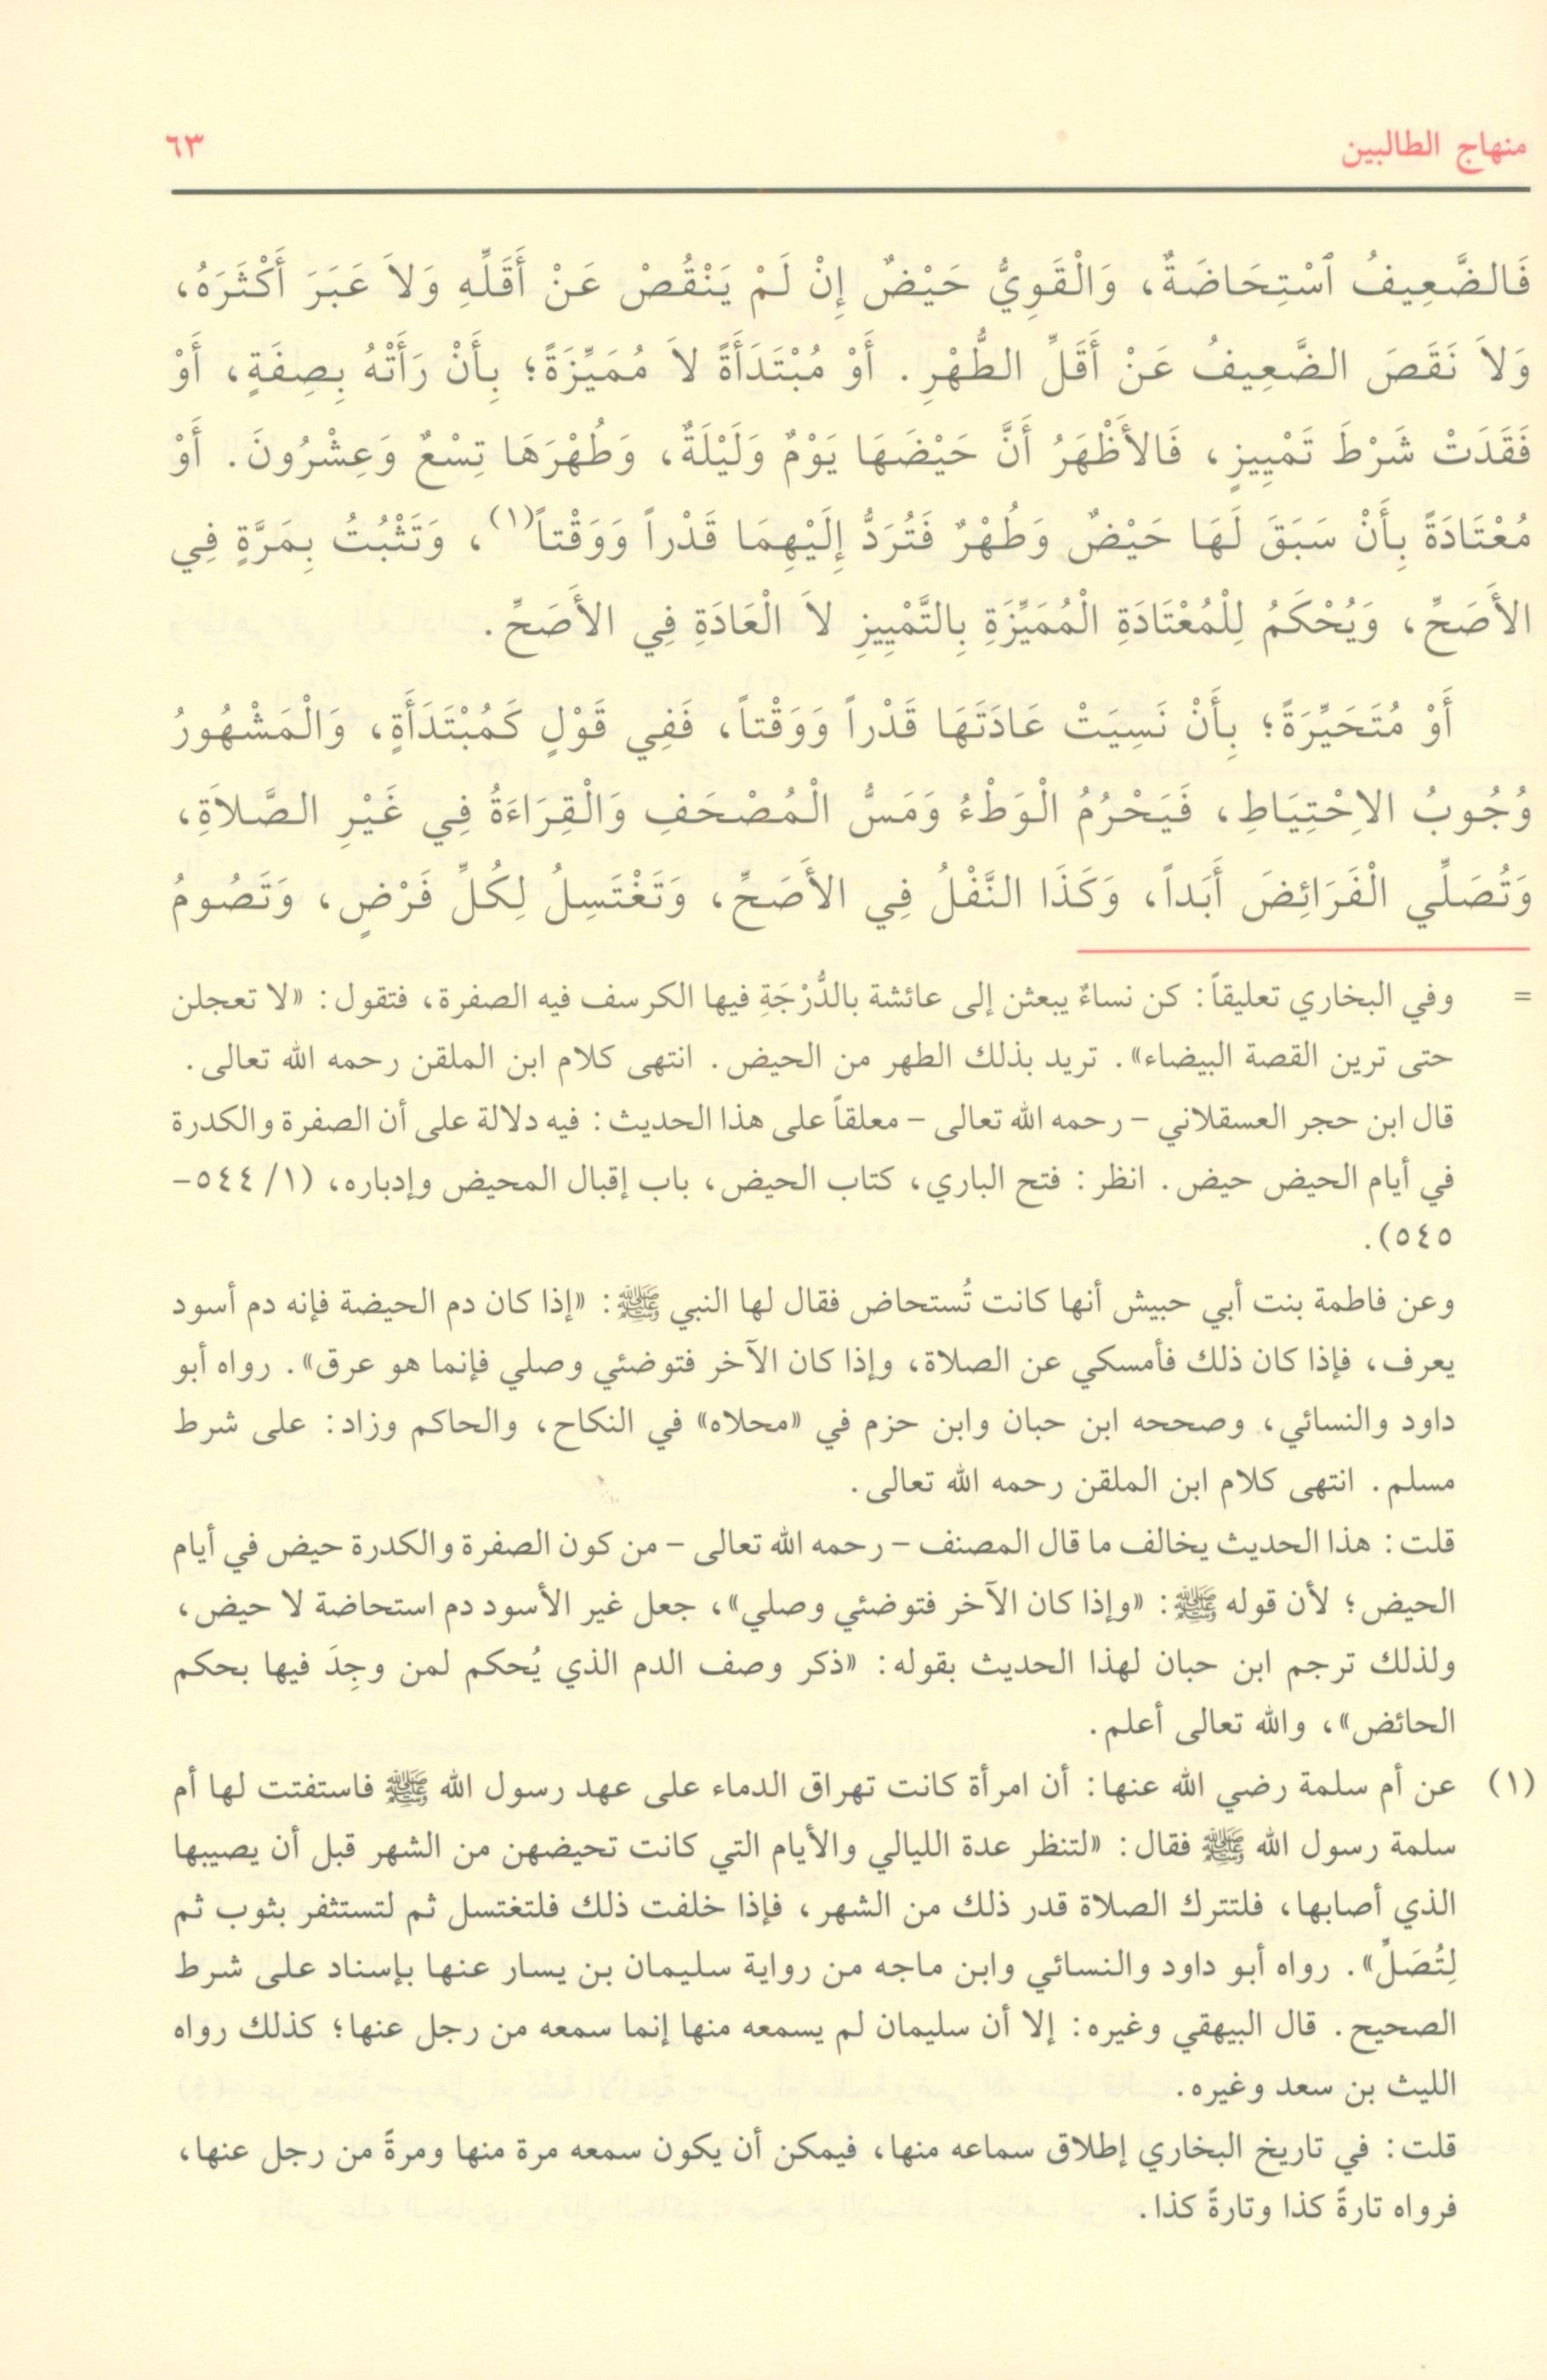 منهاج الطالبين ٦٣
فَالضَّعِيفُ ٱسْتِحَاضَةٌ، وَالْقَوِيُّ حَيْضٌ إِنْ لَمْ يَنْقُصْ عَنْ أَقَلِّهِ وَلاَ عَبَرَ أَكْثَرَهُ،
وَلاَ نَقَصَ الضَّعِيفُ عَنْ أَقَلِّ الطُّهْرِ. أَوْ مُبْتَدَأَةً لاَ مُمَيِّزَةً؛ بِأَنْ رَأَتْهُ بِصِفَةٍ، أَوْ
فَقَدَتْ شَرْطَ تَمْيِيزٍ، فَالأَظْهَرُ أَنَّ حَيْضَهَا يَوْمٌ وَلَيْلَةٌ، وَطُهْرَهَا تِسْعٌ وَعِشْرُونَ. أَوْ
مُعْتَادَةً بِأَنْ سَبَقَ لَهَا حَيْضٌ وَطُهْرٌ فَتُرَدُّ إِلَيْهِمَا قَدْراً وَوَقْتاً(١)، وَتَثْبُتُ بِمَرَّةٍ فِي
الأَصَحِّ، وَيُحْكَمُ لِلْمُعْتَادَةِ الْمُمَيِّزَةِ بِالتَّمْيِيزِ لاَ الْعَادَةِ فِي الأَصَحِّ.
أَوْ مُتَحَيِّرَةً؛ بِأَنْ نَسِيَتْ عَادَتَهَا قَدْراً وَوَقْتاً، فَفِي قَوْلٍ كَمُبْتَدَأَةٍ، وَالْمَشْهُورُ
وُجُوبُ الاِحْتِيَاطِ، فَيَحْرُمُ الْوَطْءُ وَمَسُّ الْمُصْحَفِ وَالْقِرَاءَةُ فِي غَيْرِ الصَّلاَةِ،
وَتُصَلِّي الْفَرَائِضَ أَبَداً، وَكَذَا النَّفْلُ فِي الأَصَحِّ، وَتَغْتَسِلُ لِكُلِّ فَرْضٍ، وَتَصُومُ
= وفي البخاري تعليقاً: كن نساءٌ يبعثن إلى عائشة بالدُّرْجَةِ فيها الكرسف فيه الصفرة، فتقول: «لا تعجلن
حتى ترين القصة البيضاء». تريد بذلك الطهر من الحيض. انتهى كلام ابن الملقن رحمه الله تعالى.
قال ابن حجر العسقلاني – رحمه الله تعالى – معلقاً على هذا الحديث: فيه دلالة على أن الصفرة والكدرة
في أيام الحيض حيض. انظر: فتح الباري، كتاب الحيض، باب إقبال المحيض وإدباره، (١/ ٥٤٤–
٥٤٥).
وعن فاطمة بنت أبي حبيش أنها كانت تُستحاض فقال لها النبي ﷺ: «إذا كان دم الحيضة فإنه دم أسود
يعرف، فإذا كان ذلك فأمسكي عن الصلاة، وإذا كان الآخر فتوضئي وصلي فإنما هو عرق». رواه أبو
داود والنسائي، وصححه ابن حبان وابن حزم في «محلاه» في النكاح، والحاكم وزاد: على شرط
مسلم. انتهى كلام ابن الملقن رحمه الله تعالى.
قلت: هذا الحديث يخالف ما قال المصنف – رحمه الله تعالى – من كون الصفرة والكدرة حيض في أيام
الحيض؛ لأن قوله ﷺ: «وإذا كان الآخر فتوضئي وصلي»، جعل غير الأسود دم استحاضة لا حيض،
ولذلك ترجم ابن حبان لهذا الحديث بقوله: «ذكر وصف الدم الذي يُحكم لمن وجِدَ فيها بحكم
الحائض»، والله تعالى أعلم.
(١) عن أم سلمة رضي الله عنها: أن امرأة كانت تهراق الدماء على عهد رسول الله ﷺ فاستفتت لها أم
سلمة رسول الله ﷺ فقال: «لتنظر عدة الليالي والأيام التي كانت تحيضهن من الشهر قبل أن يصيبها
الذي أصابها، فلتترك الصلاة قدر ذلك من الشهر، فإذا خلفت ذلك فلتغتسل ثم لتستثفر بثوب ثم
لِتُصَلِّ». رواه أبو داود والنسائي وابن ماجه من رواية سليمان بن يسار عنها بإسناد على شرط
الصحيح. قال البيهقي وغيره: إلا أن سليمان لم يسمعه منها إنما سمعه من رجل عنها؛ كذلك رواه
الليث بن سعد وغيره.
قلت: في تاريخ البخاري إطلاق سماعه منها، فيمكن أن يكون سمعه مرة منها ومرةً من رجل عنها،
فرواه تارةً كذا وتارةً كذا.